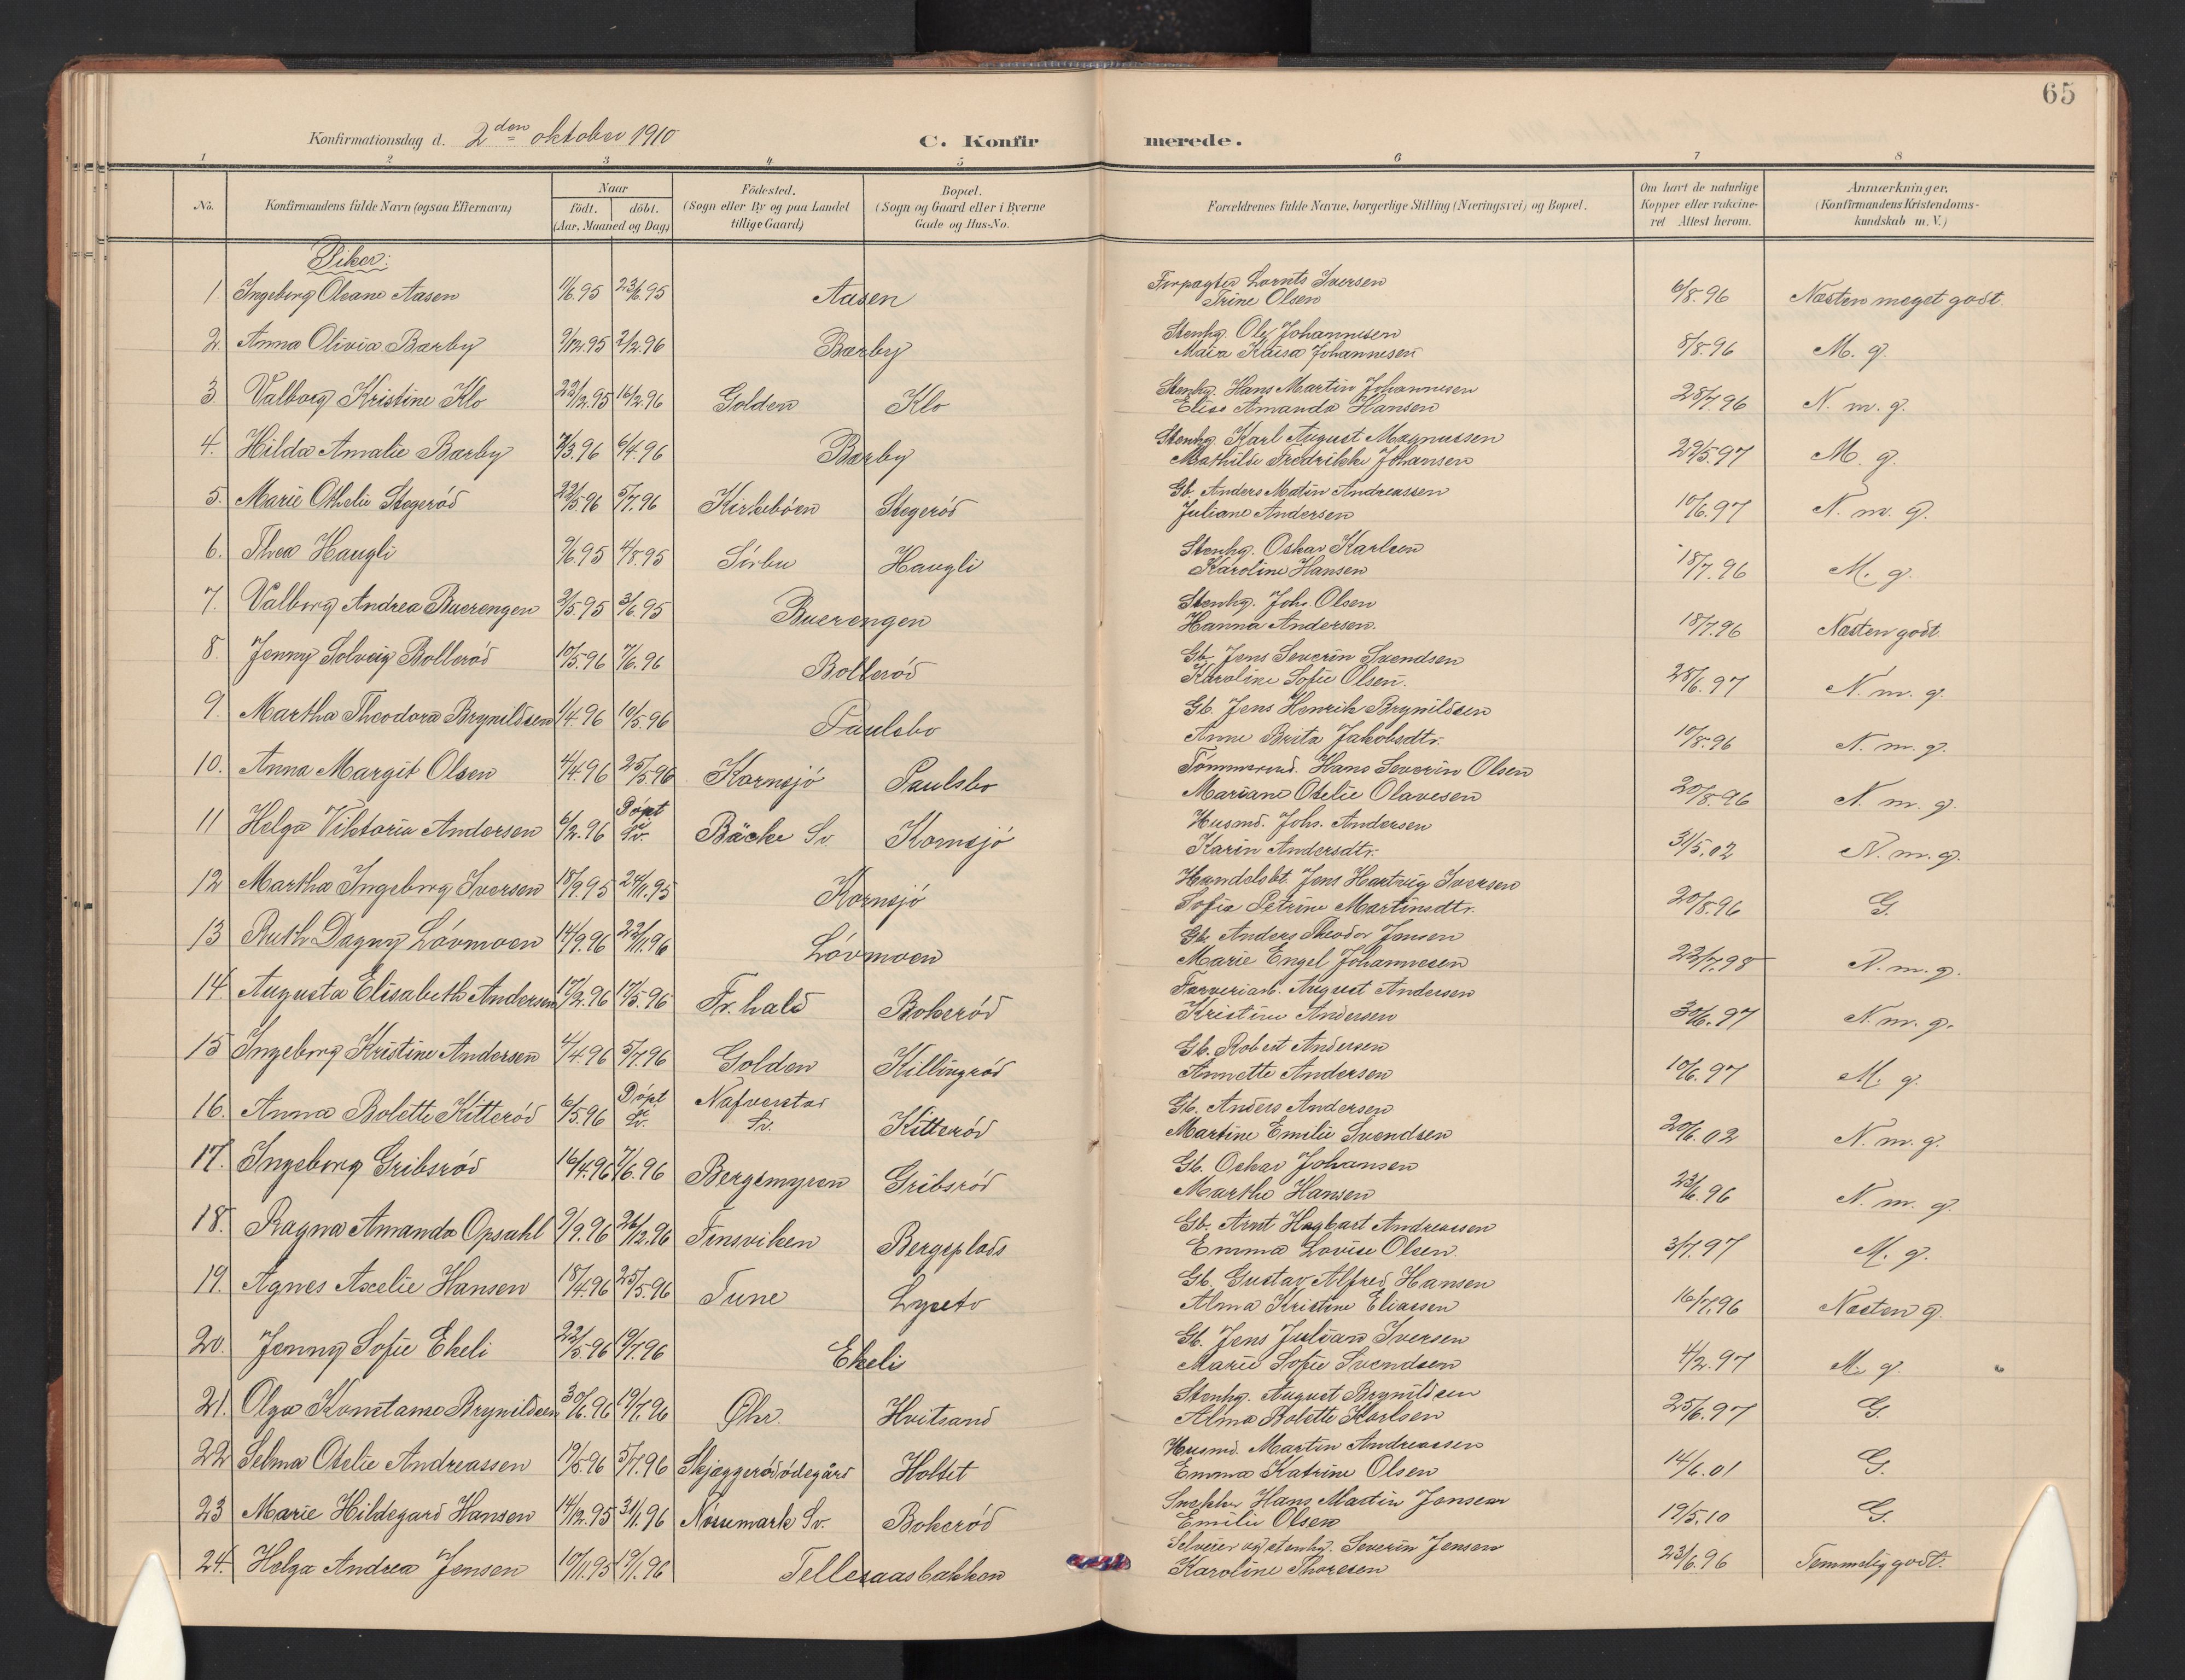 65
Konfirmationsdag d. 2den oktober 1910 C. Konfirmerede.
1 2 3 4 5 6 7 8
No. Konfirmandens fulde Navn (ogsaa Efternavn) Naar födt. döbt. (Aar, Maaned og Dag) Födested. (Sogn eller By og paa Landet tillige Gaard) Bopæl. (Sogn og Gaard eller i Byerne Gade og Hus-No. Forældrenes fulde Navne, borgerlige Stilling (Næringsvei) og Bopæl. Om havt de naturlige Kopper eller vakcineret Attest herom. Anmærkninger. (Konfirmandens Kristendomskundskab m. V.)
Piker:
1 Ingeborg Oleane Aasen 11/6.95 23/6.95 Aasen Forpagter Lornts Iversen Trine Olsen 6/8.96 Næsten meget godt.
2. Anna Olivia Barby 9/12.95 2/2.96 Barby Stenhg. Ole Johannesen Maia Kaisa Johannesen 8/8.96 M. g.
3. Valborg Kristine Klo 23/12.95 16/2.96 Golden Klo Stenhg. Hans Martin Johannesen Elise Amanda Hansen 28/7.96 N. m. g.
4. Hilda Amalie Barby 7/3.96 6/4.96 Barby Stenhg. Karl August Magnussen Mathilde Fredrikke Johansen 29/5.97 M. g.
5. Marie Othelie Stegeröd 23/5.96 5/7.96 Kirkeböen Stegeröd Gb. Anders Matin Andreassen Juliane Andersen 10/6.97 N. m. g.
6. Thea Haugli 9/6.95 4/8.95 Sörbu Haugli Stenhg. Oskar Karlsen Karoline Hansen 18/7.96 M. g.
7. Valborg Andrea Buerengen 2/5.95 3/6.95 Buerengen Stenhg. Joh. Olsen Hanna Andersen. 18/7.96 Næsten godt.
8. Jenny Solveig Bolleröd 10/5.96 7/6.96 Bolleröd Gb. Jens Severin Svendsen Karoline Sofie Olsen. 28/6.97 N. m. g.
9. Martha Theodora Brynildsen 1/4.96 10/5.96 Paulsbo Gb. Jens Henrik Brynildsen Anne Brita Jakobsdtr. 10/8.96 N. m. g.
10. Anna Margit Olsen 4/4.96 25/5.96 Kornsjö Paulsbo Tömmermd. Hans Severin Olsen Mariane Otelie Olavesen 20/8.96 N. m. g.
11 Helga Viktoria Andersen 6/2.96 Döpt i Sv. Bäcke Sv. Kornsjö Husmd. Johs. Andersen Karin Andersdtr. 31/5.02 N. m. g.
12 Martha Ingeborg Iversen 18/9.95 24/11.95 Kornsjö Handelsbt. Jens Hartvig Iversen Sofie Petrine Martinsdtr. 20/8.96 G.
13 Ruth Dagny Lövmoen 14/9.96 22/11.96 Lövmoen Gb. Anders Theodor Jensen Marie Engel Johannesen 23/7.98 N. m. g.
14. Augusta Elisabeth Andersen 17/2.96 17/5.96 Fr.hald Bokeröd Farveriarb. August Andersen Kristine Andersen 30/6.97 N. m. g.
15 Ingeborg Kristine Andersen 4/4.96 5/7.96 Golden Killingröd Gb. Robert Andersen Annette Andersen 10/6.97 M. g.
16. Anna Bolette Kitteröd 6/5.96 Döpt i Sv. Nafverstad Sv. Kitteröd Gb. Anders Andersen Martine Emilie Svendsen 20/6.02 N. m. g.
17. Ingeborg Gribsröd 16/4.96 7/6.96 Bergsmyren Gribsröd Gb. Oskar Johansen Marthe Hansen 23/6.96 N. m. g.
18. Ragna Amanda Opsahl 9/9.96 26/12.96 Finsviken Bergsplads Gb. Arnt Hagbart Andreassen Emma Lovise Olsen. 3/7.97 M. g.
19. Agnes Ascelie Hansen 18/4.96 25/5.96 Tune Lyseto Gb. Gustav Alfred Hansen Alma Kristine Eliassen 16/7.96 Næsten g.
20. Jenny Sofie Ekeli 22/5.96 19/7.96 Ekeli Gb. Jens Julian Iversen Marie Sofie Svendsen 4/2.97 M. g.
21. Olga Konstanse Brynildsen 30/6.96 19/7.96 Øhr. Hvitsand Stenhg. August Brynildsen Alma Bolette Karlsen 25/6.97 G.
22 Selma Otelie Andreassen 19/5.96 5/7.96 Skjæggerödödegård Holtet Husmd. Martin Andreassen Emma Katrine Olsen 14/6.01 G.
23 Marie Hildegard Hansen 14/12.95 31/1.96 Nössemark Sv. Bokeröd Snekker Hans Martin Jensen Emilie Olsen 19/5.10 G.
24. Helga Andrea Jensen 10/11.95 19/1.96 Tellesaasbakken Selveier og stenhg. Severin Jensen Karoline Thoresen 23/6.96 Temmelig godt.